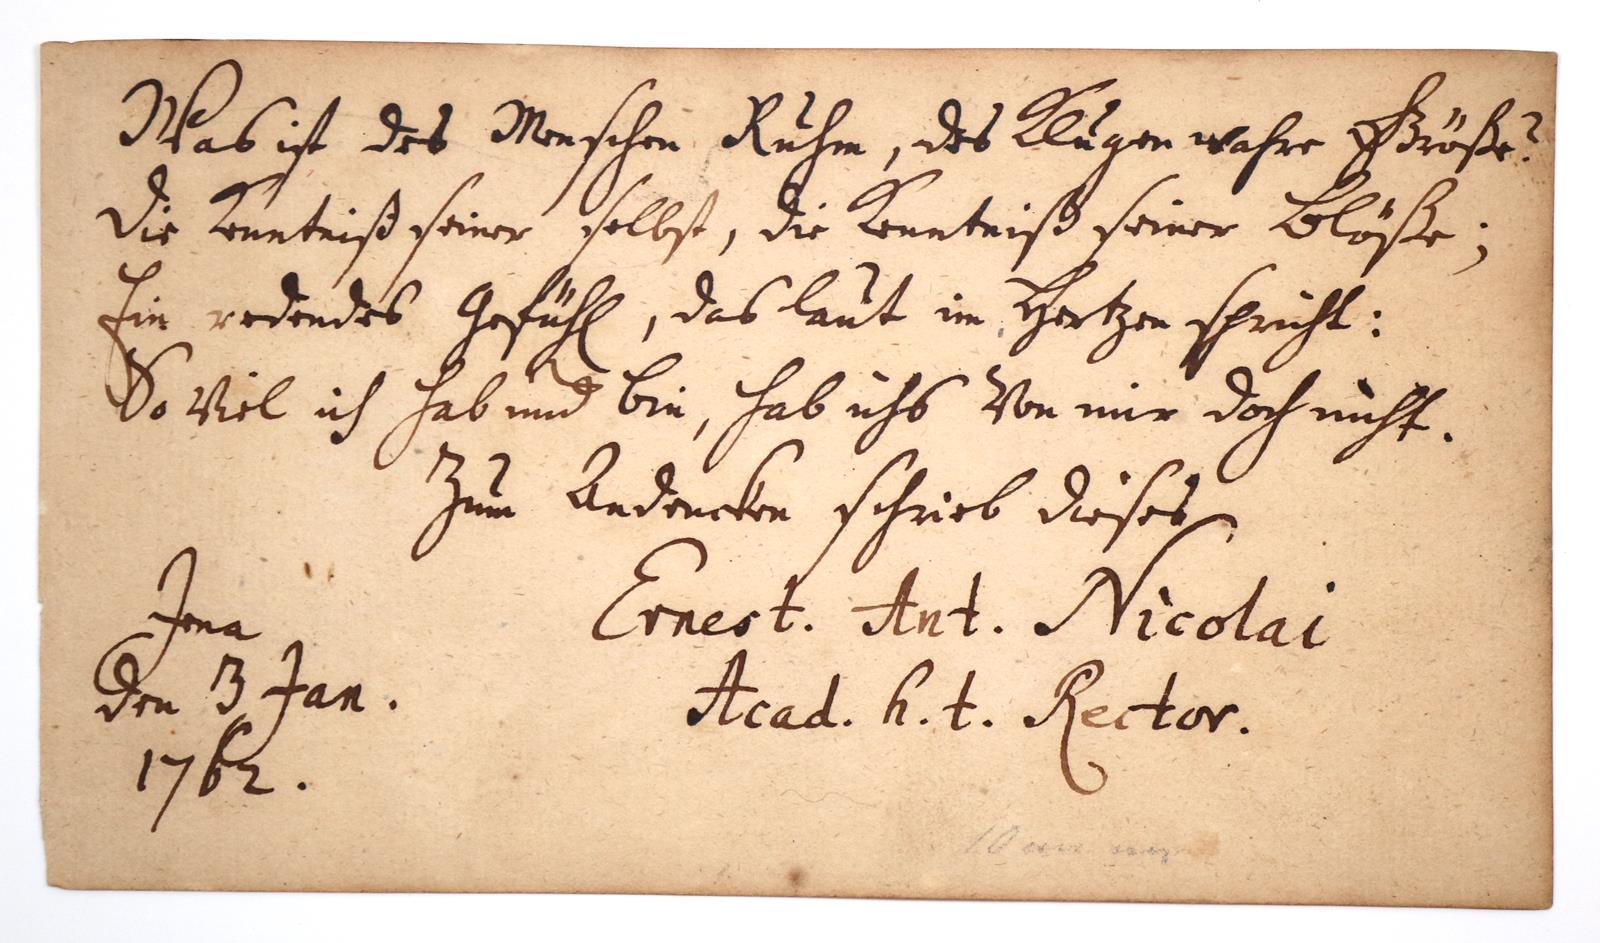 Was ist des Menschen Ruhm, des Klugen wahre Größe?
Die Kenntniß seiner selbst, die Kenntniß seiner Blöße;
Ein redendes Gefühl, das laut im Hertzen spricht:
So viel ich hab und bin, hab ichs von mir doch nicht.
Zum Andencken schrieb dieses
Ernest. Ant. Nicolai
Acad. h. t. Rector.
Jena
den 3 Jan.
1762.